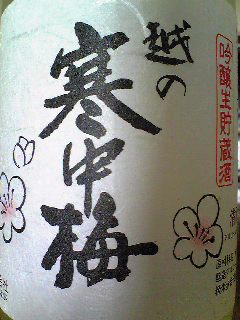 吟醸生貯蔵酒
越の
寒中梅